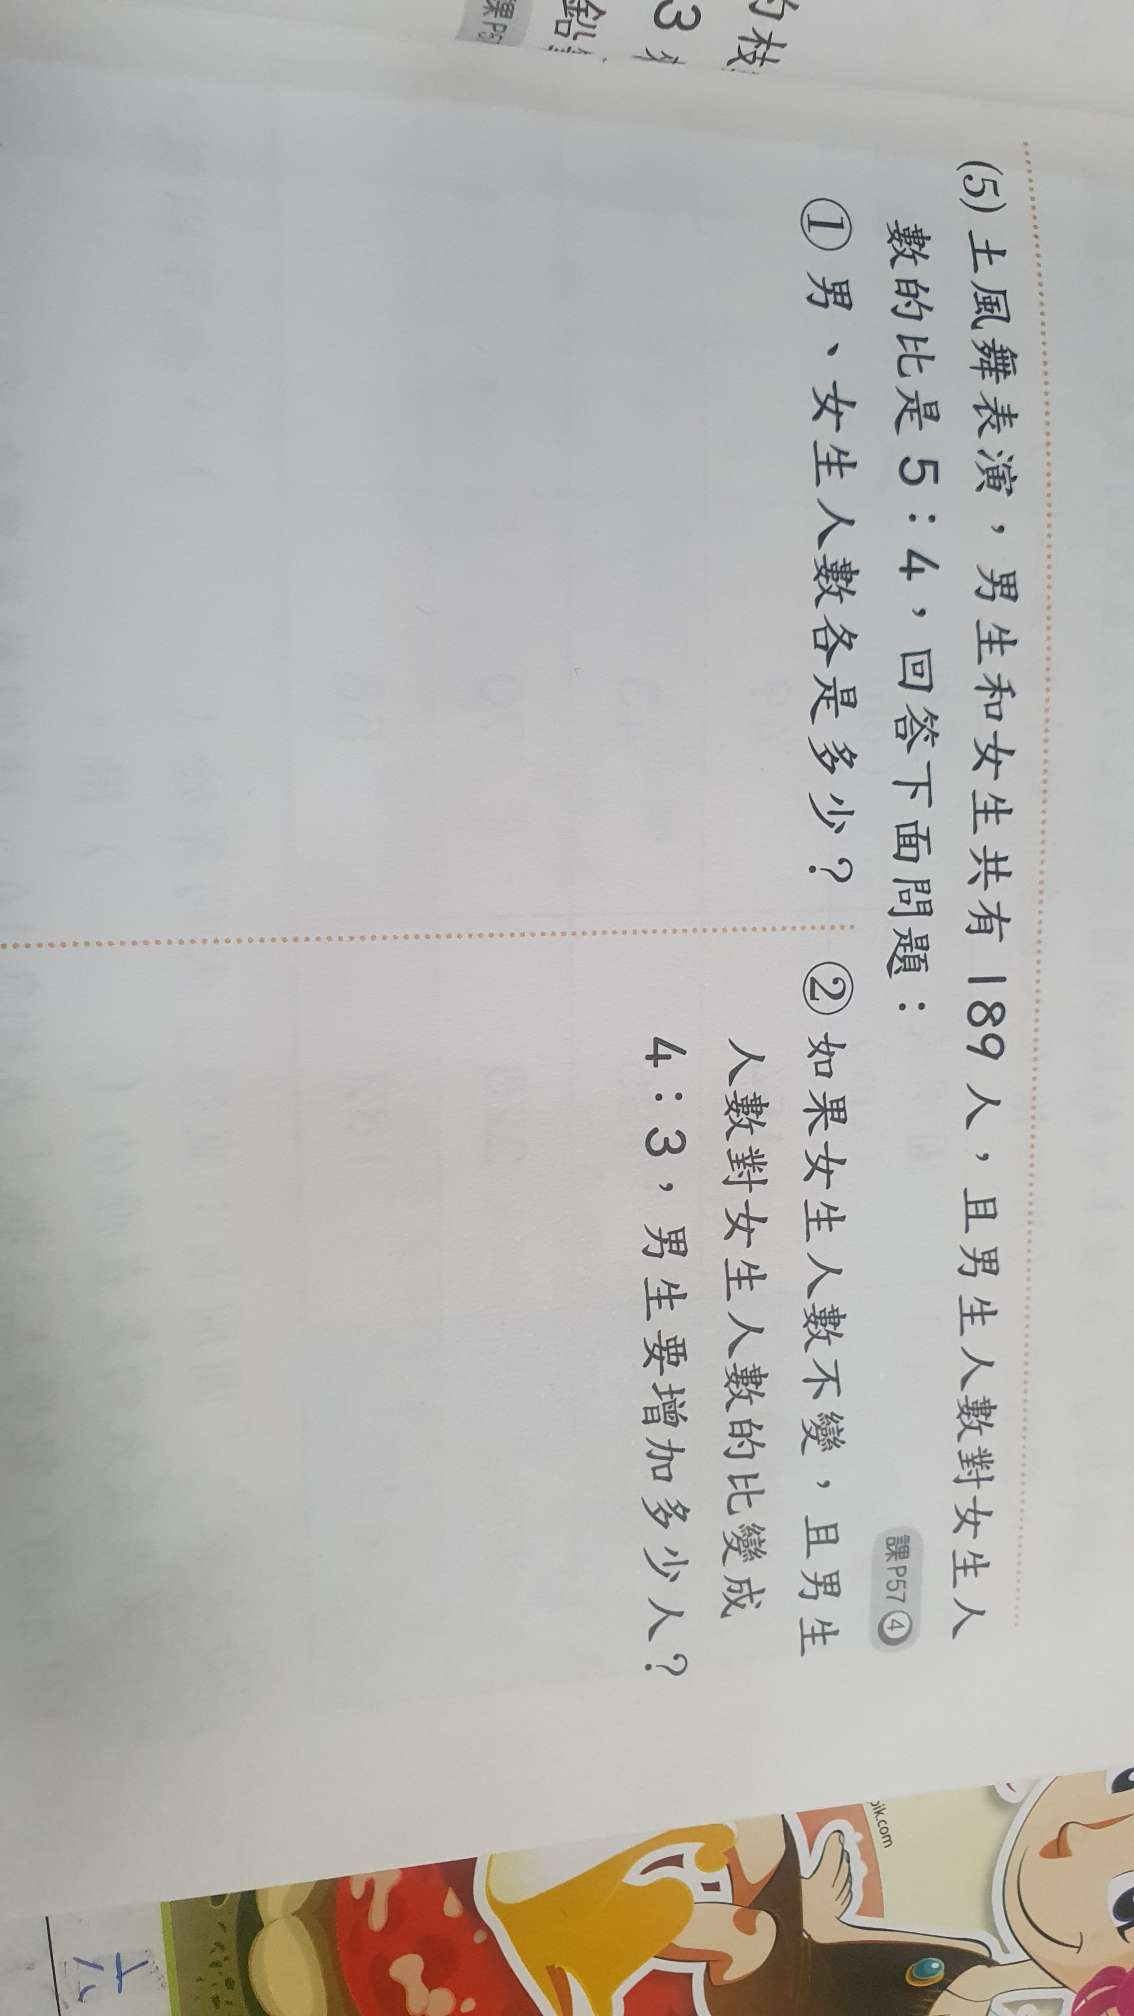 的枝
3
鉛
課P5
(5) 土風舞表演，男生和女生共有 189 人，且男生人數對女生人
數的比是 5：4，回答下面問題：
課P57④
① 男、女生人數各是多少？
② 如果女生人數不變，且男生
人數對女生人數的比變成
4：3，男生要增加多少人？
pik.com